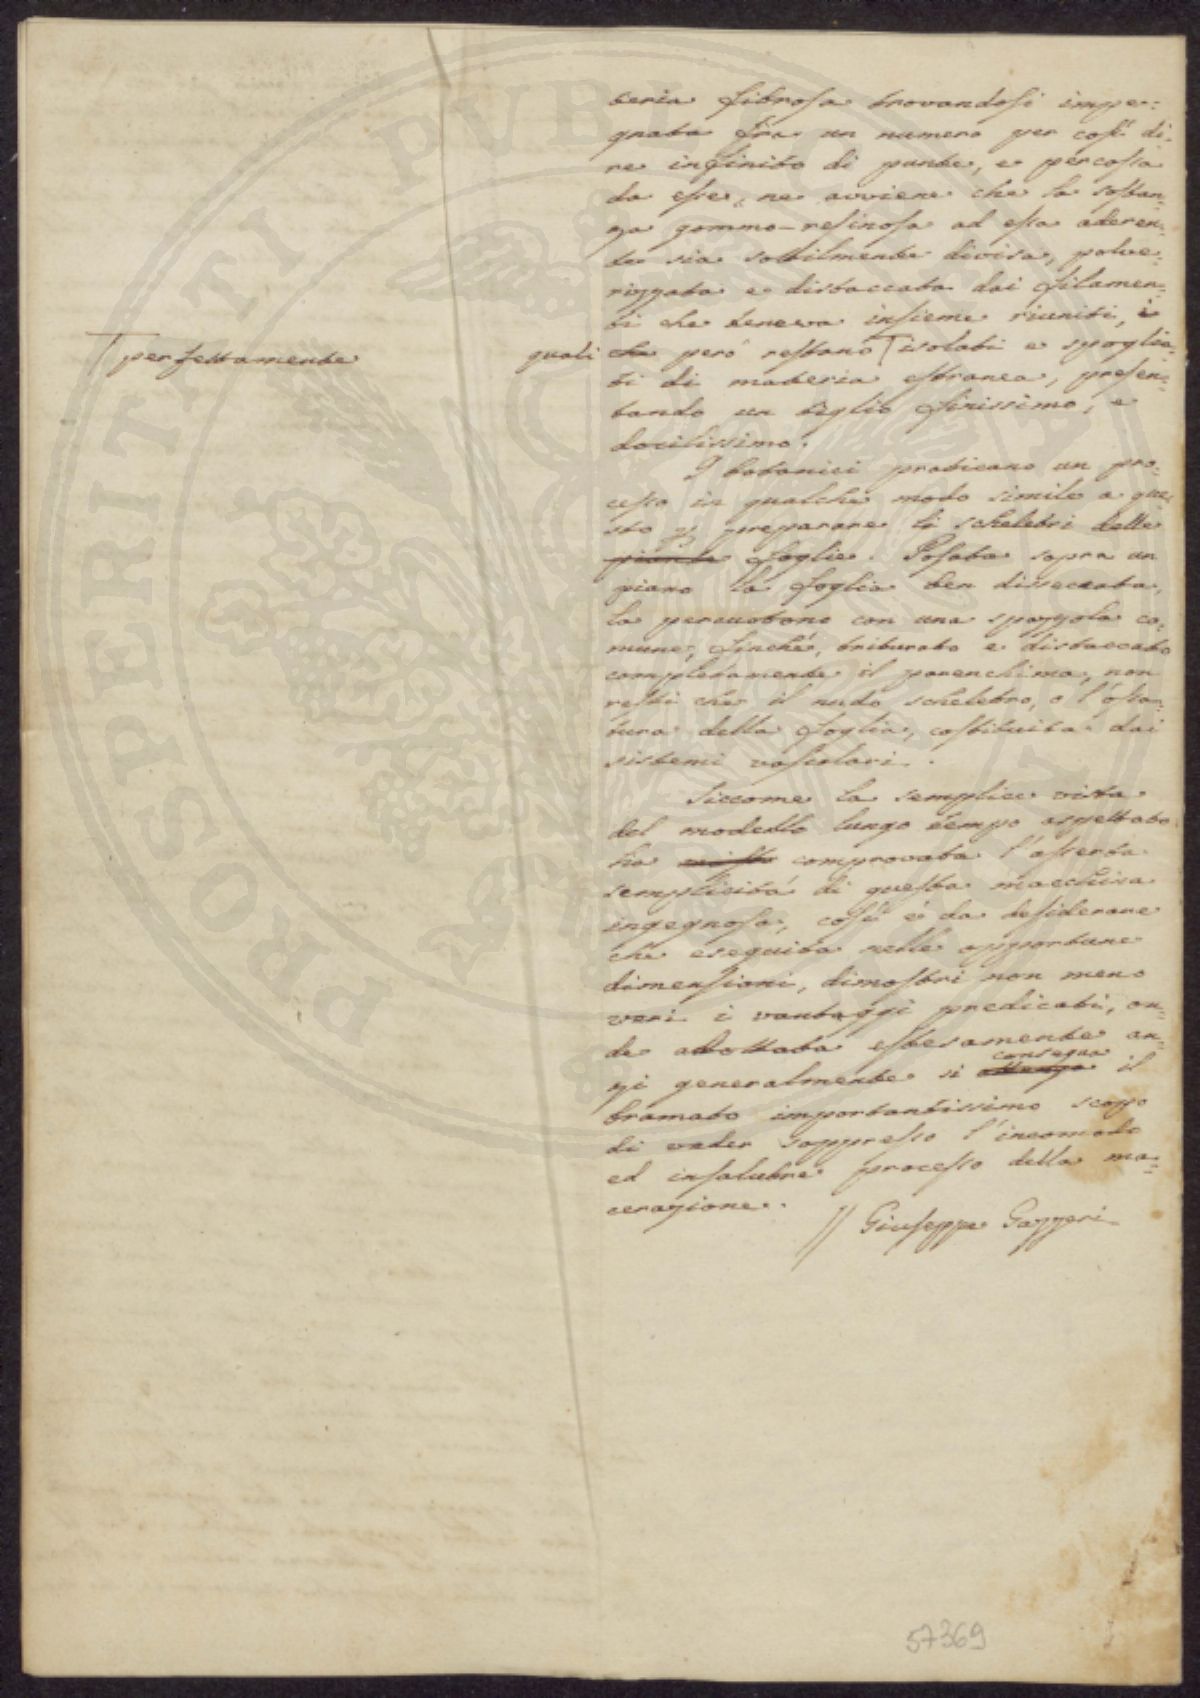 teria fibrosa trovandosi impe=
gnata fra un numero per così di=
re infinito di punte, e percossa
da esse, ne avviene che la sostan=
za gommo-resinosa ad essa aderen=
te sia sottilmente divisa, polve=
rizzata e distaccata dai filamen=
ti che teneva insieme riuniti, i
quali che però restano ⊤ isolati e spoglia=
⊤ perfettamente
ti di materia estranea, presen=
tando un tiglio finissimo, e
docilissimo.
I botanici praticano un pro=
cesso in qualche modo simile a que=
sto p preparare li scheletri delle
piante foglie. Posata sopra un
piano la foglia ben disseccata,
la percuotono con una spazzola co=
mune, finché, triturato e distaccato
completamente il parenchima, non
resti che il nudo scheletro, o l'ossa=
tura della foglia, costituita dai
sistemi vascolari.
Siccome la semplice vista
del modello lungo tempo aspettato
ha comprovata l'asserta
semplicità di questa macchina
ingegnosa, così è da desiderare
che eseguita nelle opportune
dimensioni, dimostri non meno
veri i vantaggi predicati, on=
de adottata estesamente an=
zi generalmente si ottenga consegua il
bramato importantissimo scopo
di veder soppresso l'incomodo
ed insalubre processo della ma=
cerazione.
// Giuseppe Gazzeri
57369
PROSPERITATI PVBLICAE